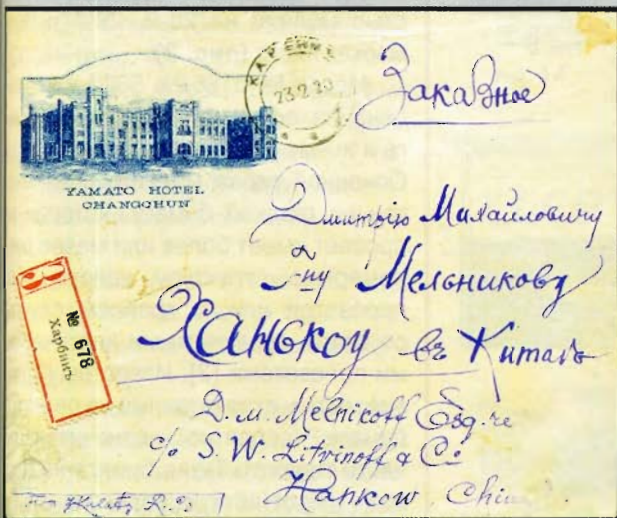 ХАРБИНЪ
23 2 20
Заказное
YAMATO HOTEL
CHANGCHUN
Дмитрію Михайловичу
Г-ну Мельникову
Ханькоу въ Китаѣ
З
№ 678
Харбинъ
D. M. Melnikoff Esq-re
c/o S. W. Litvinoff & Co
Hankow China